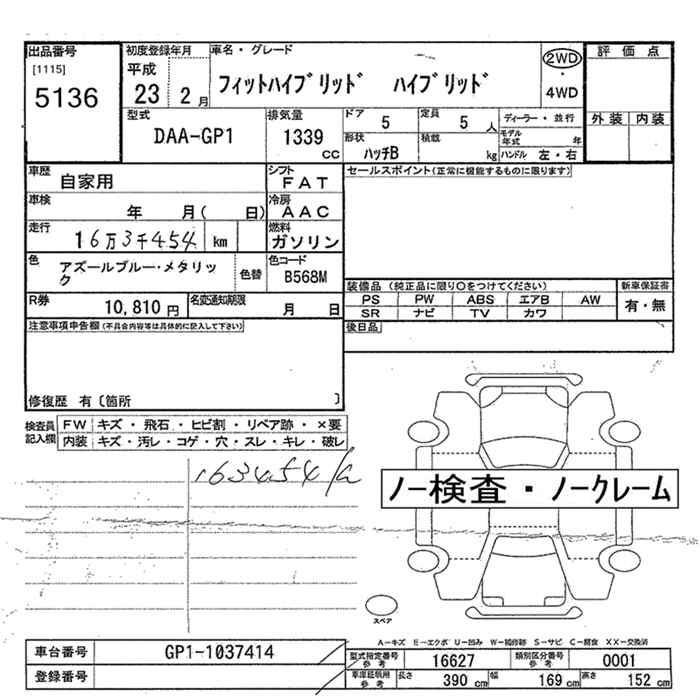 出品番号
[1115]
5136
初度登録年月
平成
23 2 月
車名・グレード
フィットハイブリッド ハイブリッド
2WD
・
4WD
評価点
外装 内装
型式
DAA-GP1
排気量
1339
cc
ドア
5
定員
5 人
形状
ハッチB
積載
kg
ディーラー・並行
モデル年式 年
ハンドル 左・右
車歴
自家用
シフト
FAT
車検
年 月( 日)
冷房
AAC
走行
16万3千454 km
燃料
ガソリン
色
アズールブルー・メタリック
色替
色コード
B568M
R券
10,810 円
名変通知期限
月 日
セールスポイント(正常に機能するものに限ります)
装備品(純正品に限り○をつけてください)
PS PW ABS エアB AW
SR ナビ TV カワ
新車保証書
有・無
後日品
注意事項申告欄(不具合内容等は具体的に記入して下さい)
修復歴 有〔箇所 〕
検査員記入欄
FW キズ・飛石・ヒビ割・リペア跡・×要
内装 キズ・汚レ・コゲ・穴・スレ・キレ・破レ
163454
ノー検査・ノークレーム
スペア
A-キズ E-エクボ U-凹み W-補修跡 S-サビ C-腐食 XX-交換済
車台番号 GP1-1037414
登録番号
型式指定番号参考 16627 類別区分番号参考 0001
車庫証明用参考 長さ 390 cm 幅 169 cm 高さ 152 cm